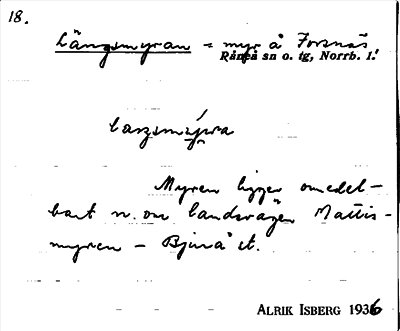 18.
Långsmyran = myr å Forsnäs,
Råneå sn o. tg, Norrb. l.
laŋsmýra
Myren ligger omedel-
bart n. om landsvägen Mattis-
myren - Bjurå st.
ALRIK ISBERG 1936